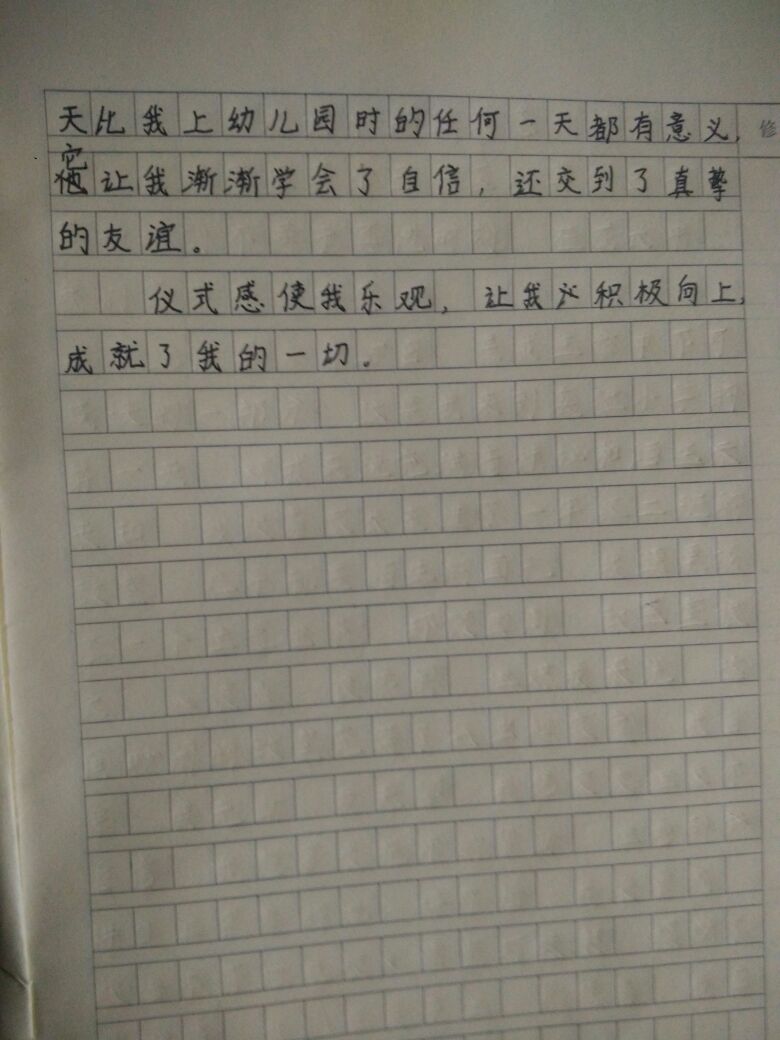 天比我上幼儿园时的任何一天都有意义，
修
它让我渐渐学会了自信，还交到了真挚
的友谊。
仪式感使我乐观，让我积极向上，
成就了我的一切。